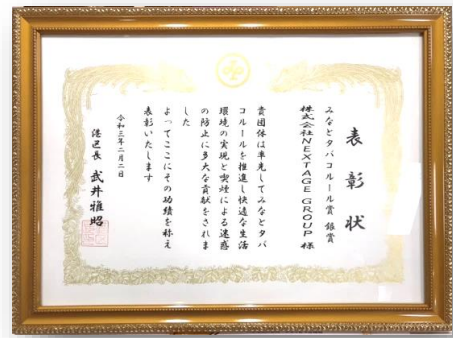 表彰状
みなとタバコルール賞 銀賞
株式会社NEXTAGE GROUP 様
貴団体は率先してみなとタバ
コルールを推進し快適な生活
環境の実現と喫煙による迷惑
の防止に多大な貢献をされま
した
よってここにその功績を称え
表彰いたします
令和三年二月二日
港区長 武井雅昭